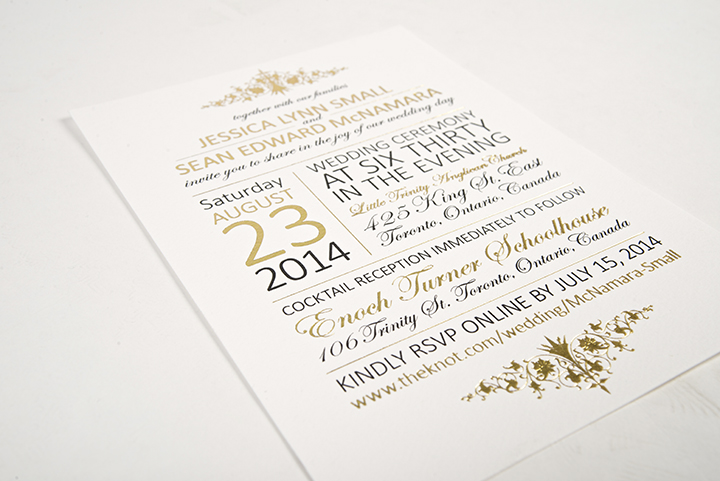 together with our families
JESSICA LYNN SMALL
and
SEAN EDWARD McNAMARA
invite you to share in the joy of our wedding day
Saturday
AUGUST
23
2014
WEDDING CEREMONY
AT SIX THIRTY
IN THE EVENING
Little Trinity Anglican Church
425 King St. East
Toronto, Ontario, Canada
COCKTAIL RECEPTION IMMEDIATELY TO FOLLOW
Enoch Turner Schoolhouse
106 Trinity St. Toronto, Ontario, Canada
KINDLY RSVP ONLINE BY JULY 15, 2014
www.theknot.com/wedding/McNamara-Small